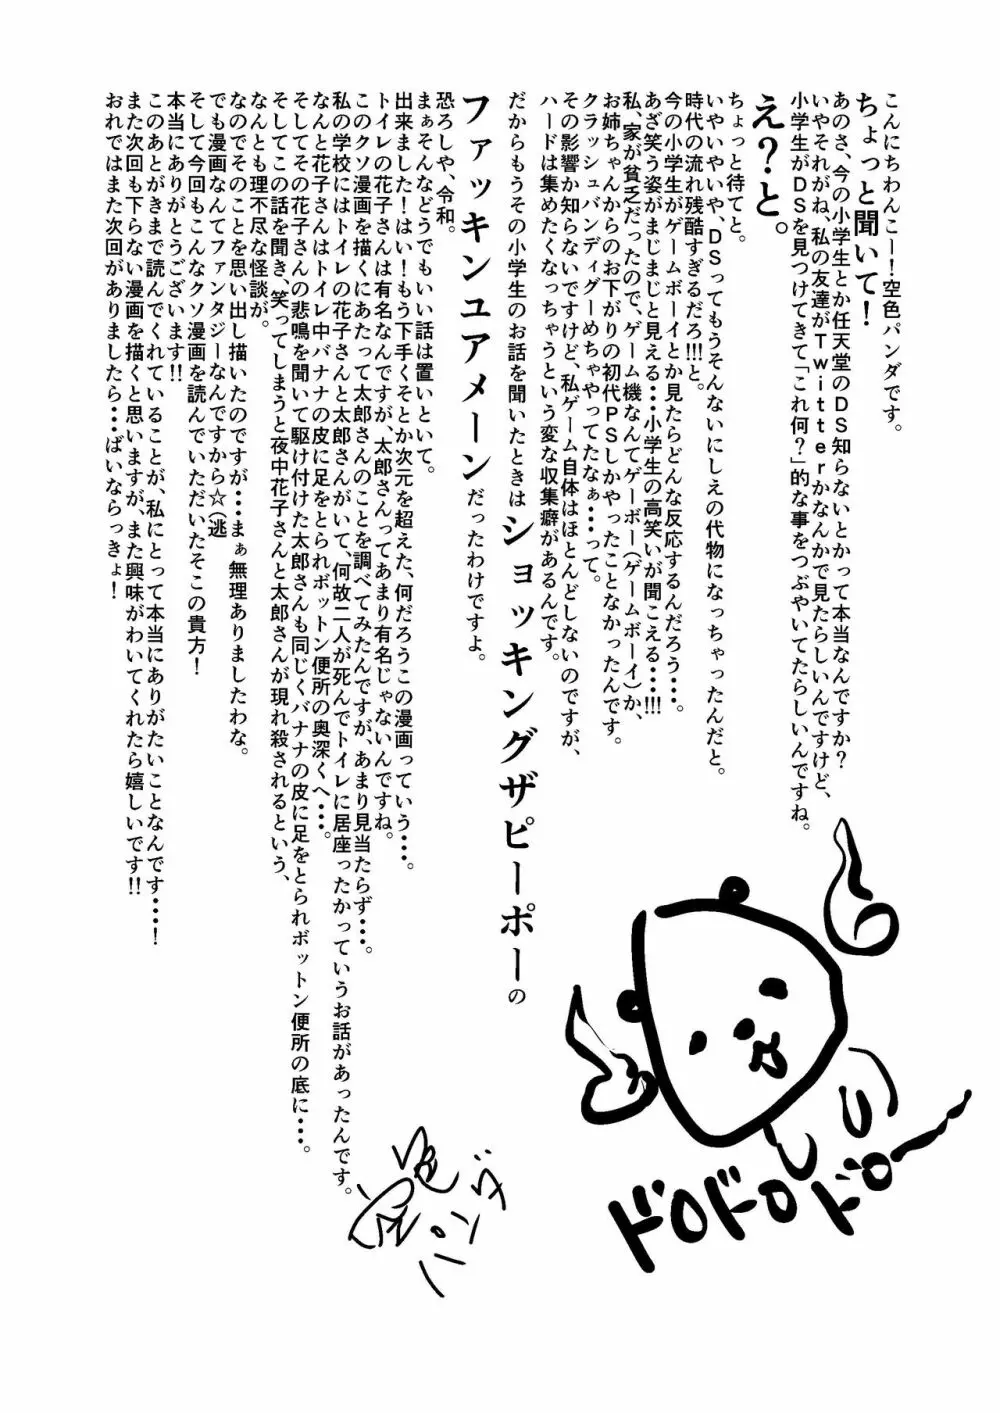 こんにちわんこー！空色パンダです。
ちょっと聞いて！
あのさ、今の小学生とか任天堂のＤＳ知らないとかって本当なんですか？
いやそれがね、私の友達がＴｗｉｔｔｅｒかなんかで見たらしいんですけど、
小学生がＤＳを見つけてきて「これ何？」的な事をつぶやいてたらしいんですね。
え？と。
ちょっと待てと。
いやいやいや、ＤＳってもうそんないにしえの代物になっちゃったんだと。
時代の流れ残酷すぎるだろ!!!と。
今の小学生がゲームボーイとか見たらどんな反応するんだろう・・・。
あざ笑う姿がまじまじと見える・・・小学生の高笑いが聞こえる・・・!!!
私、家が貧乏だったので、ゲーム機なんてゲーボー（ゲームボーイ）か、
お姉ちゃんからのお下がりの初代ＰＳしかやったことなかったんです。
クラッシュバンディグーめちゃやってたなぁ・・・って。
その影響か知らないですけど、私ゲーム自体はほとんどしないのですが、
ハードは集めたくなっちゃうという変な収集癖があるんです。
だからもうその小学生のお話を聞いたときはショッキングザピーポーの
ファッキンユアメーンだったわけですよ。
恐ろしや、令和。
まぁそんなどうでもいい話は置いといて。
出来ました！はい！もう下手くそとか次元を超えた、何だろうこの漫画っていう・・・。
トイレの花子さんは有名なんですが、太郎さんってあまり有名じゃないんですね。
このクソ漫画を描くにあたって太郎さんのことを調べてみたんですが、あまり見当たらず・・・。
私の学校にはトイレの花子さんと太郎さんがいて、何故二人が死んでトイレに居座ったかっていうお話があったんです。
なんと花子さんはトイレ中バナナの皮に足をとられボットン便所の奥深くへ・・・。
そしてその花子さんの悲鳴を聞いて駆け付けた太郎さんも同じくバナナの皮に足をとられボットン便所の底に・・・。
そしてこの話を聞き、笑ってしまうと夜中花子さんと太郎さんが現れ殺されるという、
なんとも理不尽な怪談が。
なのでそのことを思い出し描いたのですが・・・まぁ無理ありましたわな。
でも漫画なんてファンタジーなんですから☆（逃
そして今回もこんなクソ漫画を読んでいただいたそこの貴方！
本当にありがとうございます!!
このあとがきまで読んでくれていることが、私にとって本当にありがたいことなんです・・・！
また次回も下らない漫画を描くと思いますが、また興味がわいてくれたら嬉しいです!!
おれではまた次回がありましたら・・・ばいならっきょ！
ドロドロドロー
空色パンダ